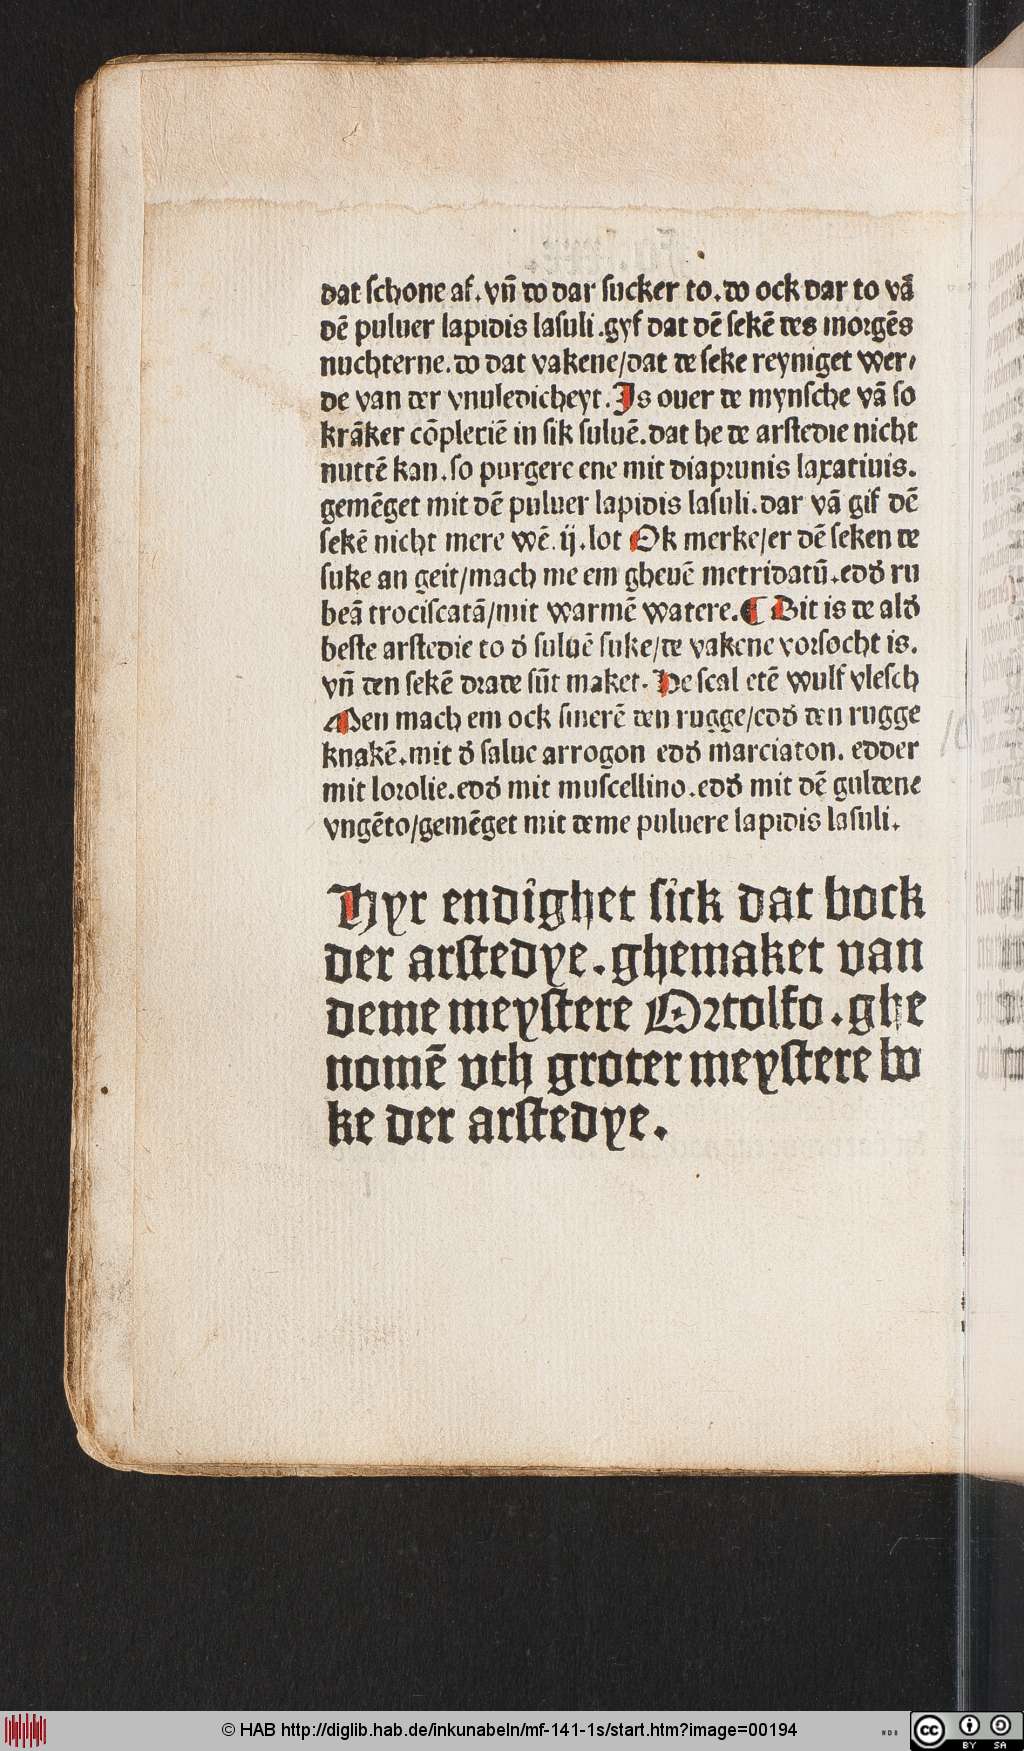 dat schone af. vñ do dar sucker to. do ock dar to vā
dē puluer lapidis lasuli. gyf dat dē sekē des morgēs
nuchterne. do dat vakene/dat de seke reyniget wer-
de van der vnuledicheyt. Is ouer de mynsche vā so
krāker cōplexiē in sik suluē. dat he de arstedie nicht
nuttē kan. so purgere ene mit diaprunis laxatiuis.
gemēget mit dē puluer lapidis lasuli. dar vā gif dē
sekē nicht mere wē. ij. lot Ok merke/er dē seken de
suke an geit/mach me em gheuē metridatū. edď ru
beā trociscatā/mit warmē watere. ¶ Dit is de alď
beste arstedie to ď suluē suke/de vakene vorsocht is.
vñ den sekē drade sūt maket. He scal etē wulf vlesch
Men mach em ock smerē den rugge/edď den rugge
knakē. mit ď salue arrogon edď marciaton. edder
mit lorolie. edď mit muscellino. edď mit dē guldene
vngēto/gemēget mit deme puluere lapidis lasuli.
Hyr endighet sick dat bock
der arstedye. ghemaket van
deme meystere Ortolfo. ghe
nomē vth groter meystere bo
ke der arstedye.
© HAB http://diglib.hab.de/inkunabeln/mf-141-1s/start.htm?image=00194
WDB
cc BY SA